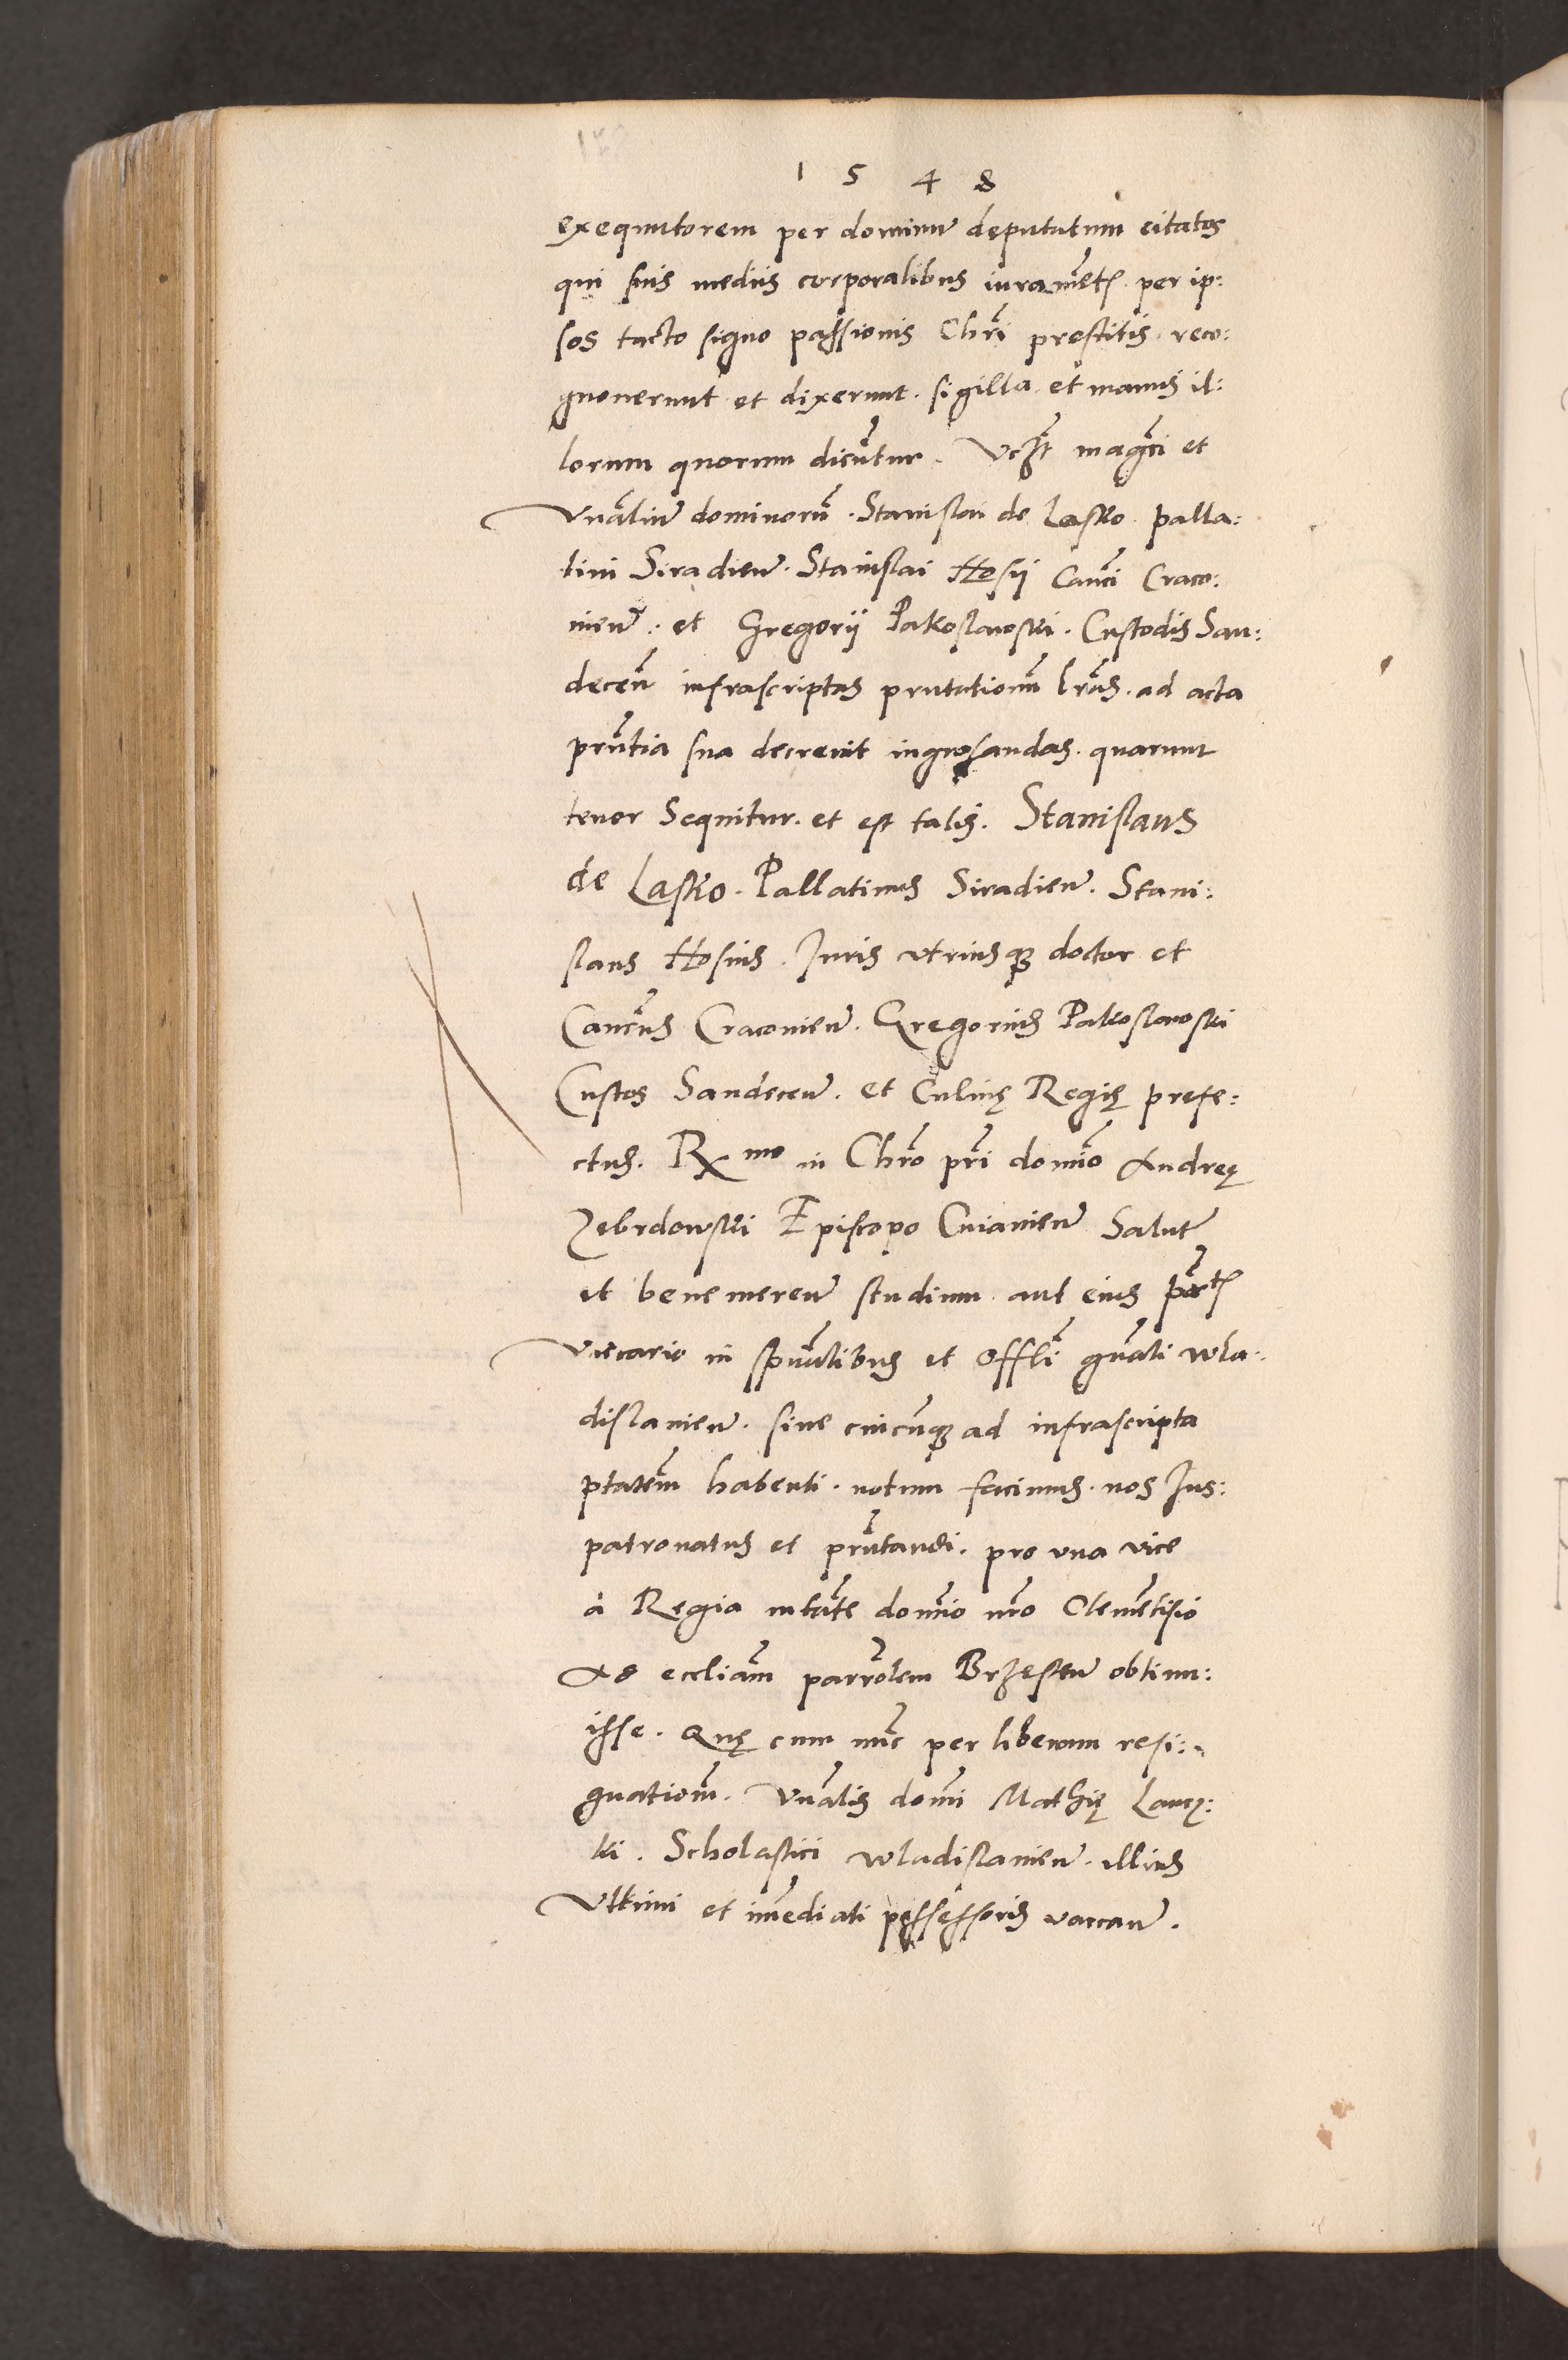 1 5 4 8
exequutorem per dominū deputatum citatos
qui suis mediis corporalibus iuramēt per ip:
sos tacto signo passionis Chri prestitis. reco:
gnouerunt et dixerunt. sigilla et manus il:
lorum quorum dicūtur. Vcz magci et
Vnāliū dominorū. Stanislai de Lasko Palla:
tini Siradieñ. Stanislai Hosii Canci Craco:
uieñ: et Gregorij Pakoslawski. Custodis San:
deceñ infrascriptas pñtationum lras. ad acta
pñtia sua decreuit ingrosandas. quarum
tenor Sequitur. et est talis. Stanislaus
de Lasko. Pallatinus Siradieñ. Stani:
slaus Hosius. Juris vtriusq doctor et
Cancus Cracouieñ. Gregorius Pakoslawski
Custos Sandeceñ. et Culinę Regię prefe:
ctus. Rx mo in Chro pri domino Andreę
Zebrdowski Episcopo Cuiauieñ Salutē
et benemereñ studium aut eius
Viecario in spualibus et Offli gnali Wla:
dislauieñ. siue cuicunq ad infrascripta
ptatem habenti. notum facimus. nos Jus:
patronatus et pñtandi. pro vna vice
à Regia mtate domino nro Clementisio
Ad eccliam parrolem Brzesteñ obtinu:
isse. Quę cum nūc per liberam resi:
gnationem. Vnalis domi Mathię Lancz:
ki. Scholastici Wladislauieñ. illius
Vltimi et imediati possessoris vaccañ.